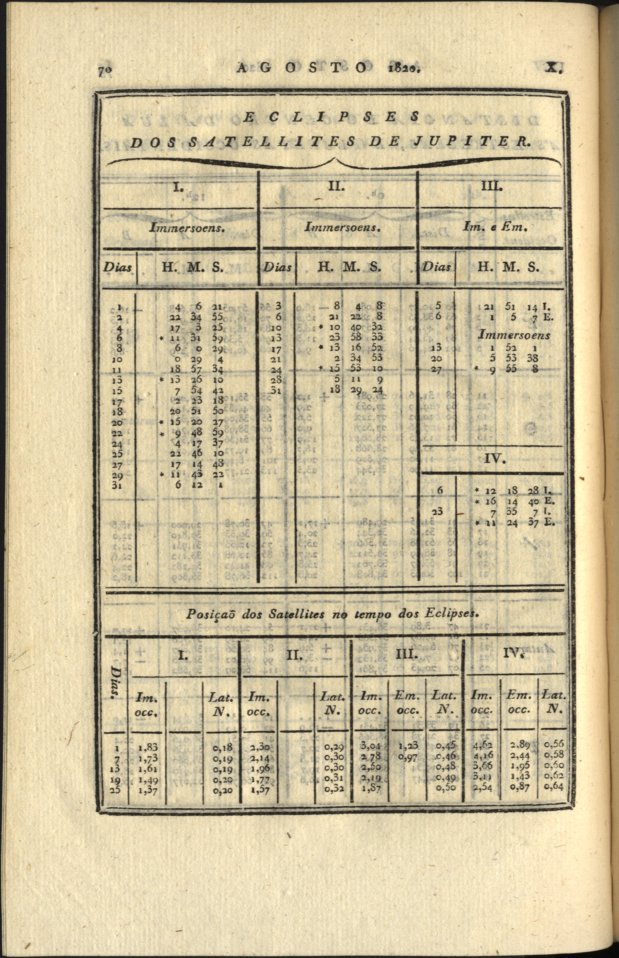 70 AGOSTO 1820. X.
ECLIPSES
DOS SATELLITES DE JUPITER.
I. II. III.
Immersoens. Immersoens. Im. e Em.
Dias H. M. S. Dias H. M. S. Dias H. M. S.
1 4 6 21
2 22 34 55
4 17 3 25
6 * 11 31 59
8 6 0 29
10 0 29 4
11 18 57 34
13 * 13 26 10
15 7 54 42
17 2 23 18
18 20 51 50
20 * 15 20 27
22 * 9 48 59
24 4 17 37
25 22 46 10
27 17 14 48
29 * 11 43 22
31 6 12 1
3 8 4 8
6 21 22 8
10 * 10 40 32
13 23 58 33
17 * 13 16 52
21 2 34 53
24 * 15 53 10
28 5 11 9
31 18 29 24
5 21 51 14 I.
6 1 5 7 E.
Immersoens
13 1 52 1
20 5 53 38
27 * 9 55 8
IV.
6 * 12 18 28 I.
* 16 14 40 E.
23 7 35 7 I.
* 11 24 37 E.
Posiçaõ dos Satellites no tempo dos Eclipses.
Dias. I. II. III. IV.
Im. occ. Lat. N. Im. occ. Lat. N. Im. occ. Em. occ. Lat. N. Im. occ. Em. occ. Lat. N.
1 1,83 0,18 2,30 0,29 3,04 1,23 0,45 4,62 2,89 0,56
7 1,73 0,19 2,14 0,30 2,78 0,97 0,46 4,16 2,44 0,58
13 1,61 0,19 1,96 0,30 2,50 0,48 3,66 1,95 0,60
19 1,49 0,20 1,77 0,31 2,19 0,49 3,11 1,43 0,62
25 1,37 0,20 1,57 0,32 1,87 0,50 2,54 0,87 0,64